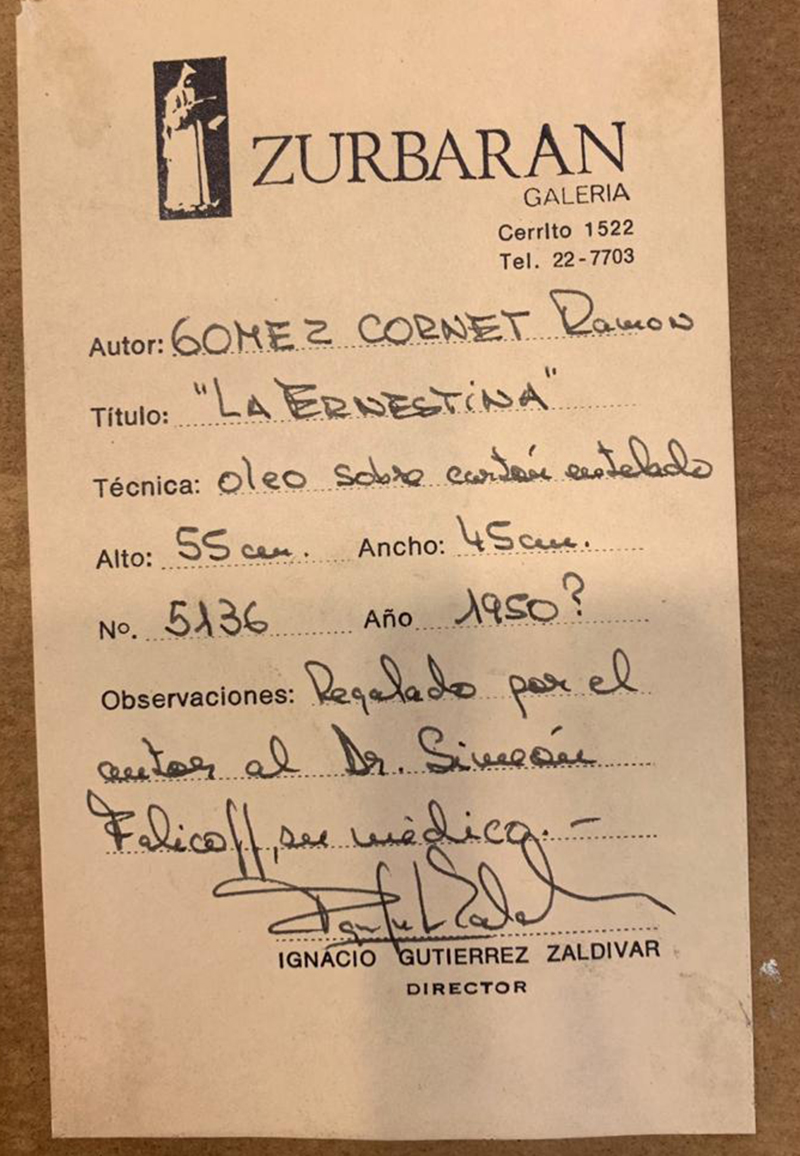 ZURBARAN
GALERIA
Cerrito 1522
Tel. 22-7703
Autor: GOMEZ CORNET Ramon
Título: "LA ERNESTINA"
Técnica: oleo sobre cartón entelado
Alto: 55 cm. Ancho: 45 cm.
Nº. 5136 Año 1950?
Observaciones: Regalado por el
autor al Dr. Simeón
Falicoff, su médico. -
IGNACIO GUTIERREZ ZALDIVAR
DIRECTOR